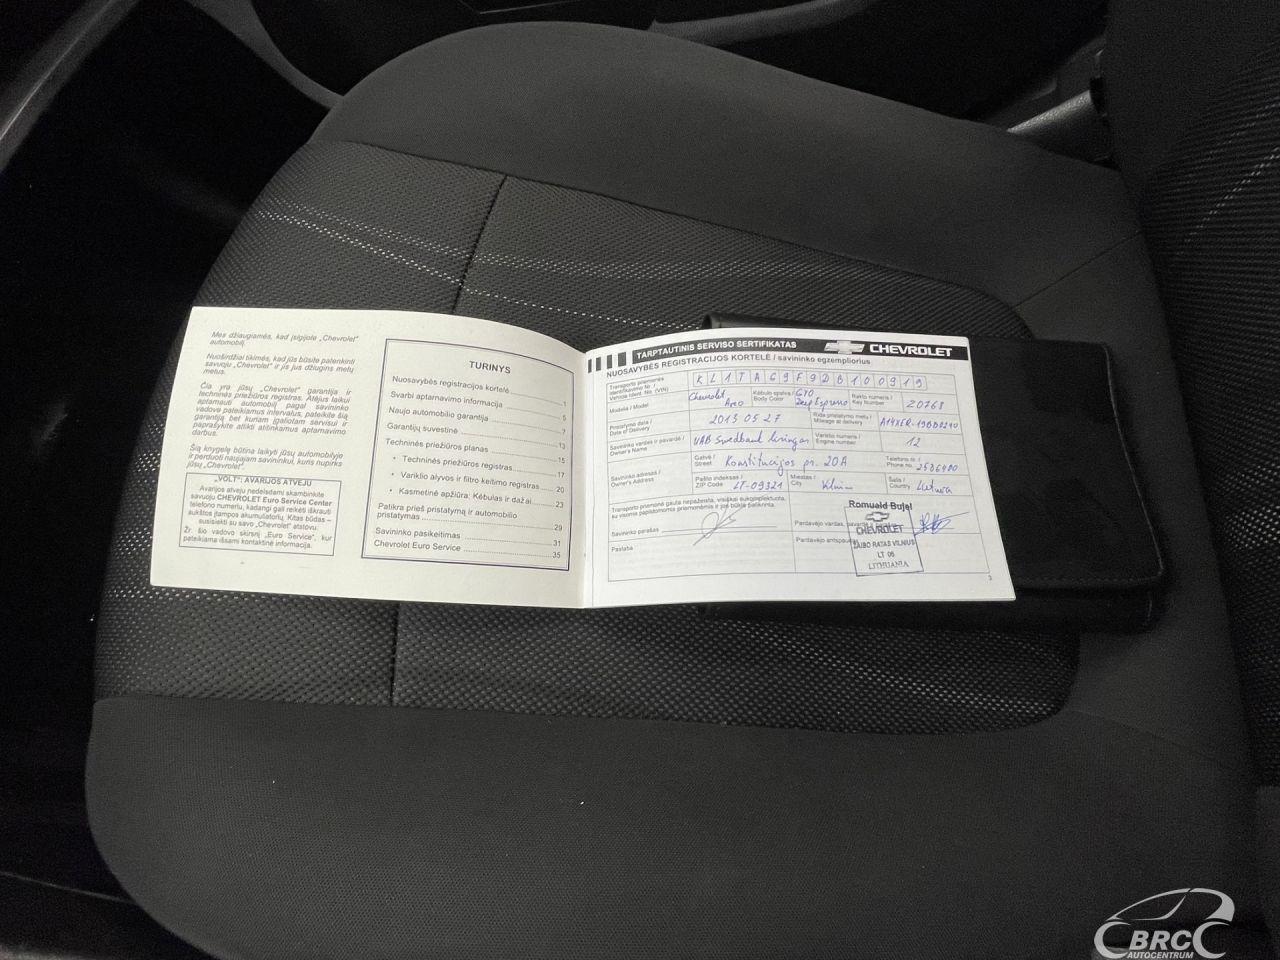 Mes džiaugiamės, kad įsigijote „Chevrolet"
automobilį.
Nuoširdžiai tikimės, kad jūs būsite patenkinti
savuoju „Chevrolet" ir jis jus džiugins metų
metus.
Čia yra jūsų „Chevrolet" garantija ir
techninės priežiūros registras. Atėjus laikui
aptarnauti automobilį pagal savininko
vadove pateikiamus intervalus, pateikite šią
garantiją bet kuriam įgaliotam servisui ir
paprašykite atlikti atitinkamus aptarnavimo
darbus.
Šią knygelę būtina laikyti jūsų automobilyje
ir perduoti naujajam savininkui, kuris nupirks
jūsų „Chevrolet".
„VOLT": AVARIJOS ATVEJU
Avarijos atveju nedelsdami skambinkite
savuoju CHEVROLET Euro Service Center
telefono numeriu, kadangi gali reikėti iškrauti
aukštos įtampos akumuliatorių. Kitas būdas –
susisiekti su savo „Chevrolet" atstovu.
Žr. šio vadovo skirsnį „Euro Service", kur
pateikiama išsami kontaktinė informacija.
TURINYS
Nuosavybės registracijos kortelė 1
Svarbi aptarnavimo informacija 5
Naujo automobilio garantija 7
Garantijų suvestinė 13
Techninės priežiūros planas 15
• Techninės priežiūros registras 17
• Variklio alyvos ir filtro keitimo registras 20
• Kasmetinė apžiūra: Kėbulas ir dažai 23
Patikra prieš pristatymą ir automobilio
pristatymas 29
Savininko pasikeitimas 31
Chevrolet Euro Service 35
TARPTAUTINIS SERVISO SERTIFIKATAS CHEVROLET
NUOSAVYBĖS REGISTRACIJOS KORTELĖ / savininko egzempliorius
Transporto priemonės
identifikavimo Nr. /
Vehicle Ident. No. (VIN) KL1TA69F9DB100919
Modelis / Model Chevrolet Aveo Kėbulo spalva / Body Color GYO Deep Espresso Rakto numeris / Key Number Z0768
Pristatymo data / Date of Delivery 2013 05 27 Rida pristatymo metu / Mileage at delivery A14XER-19BD0210
Savininko vardas ir pavardė / Owner's Name UAB Swedbank lizingas Variklio numeris / Engine number 12
Savininko adresas / Owner's Address Gatvė / Street Konstitucijos pr. 20A Telefono nr. / Phone no. 2586400
Pašto indeksas / ZIP Code LT-09321 Miestas / City Vilnius Šalis / Country Lietuva
Transporto priemonė gauta nepažeista, visiškai sukomplektuota,
su visomis papildomomis priemonėmis ir jos būklė patikrinta.
Savininko parašas
Pastaba
Romuald Bujel
Pardavėjo vardas, pavardė
Pardavėjo antspaudas
CHEVROLET
ŽAIBO RATAS VILNIUS
LT 06
LITHUANIA
3
BRC
AUTOCENTRUM